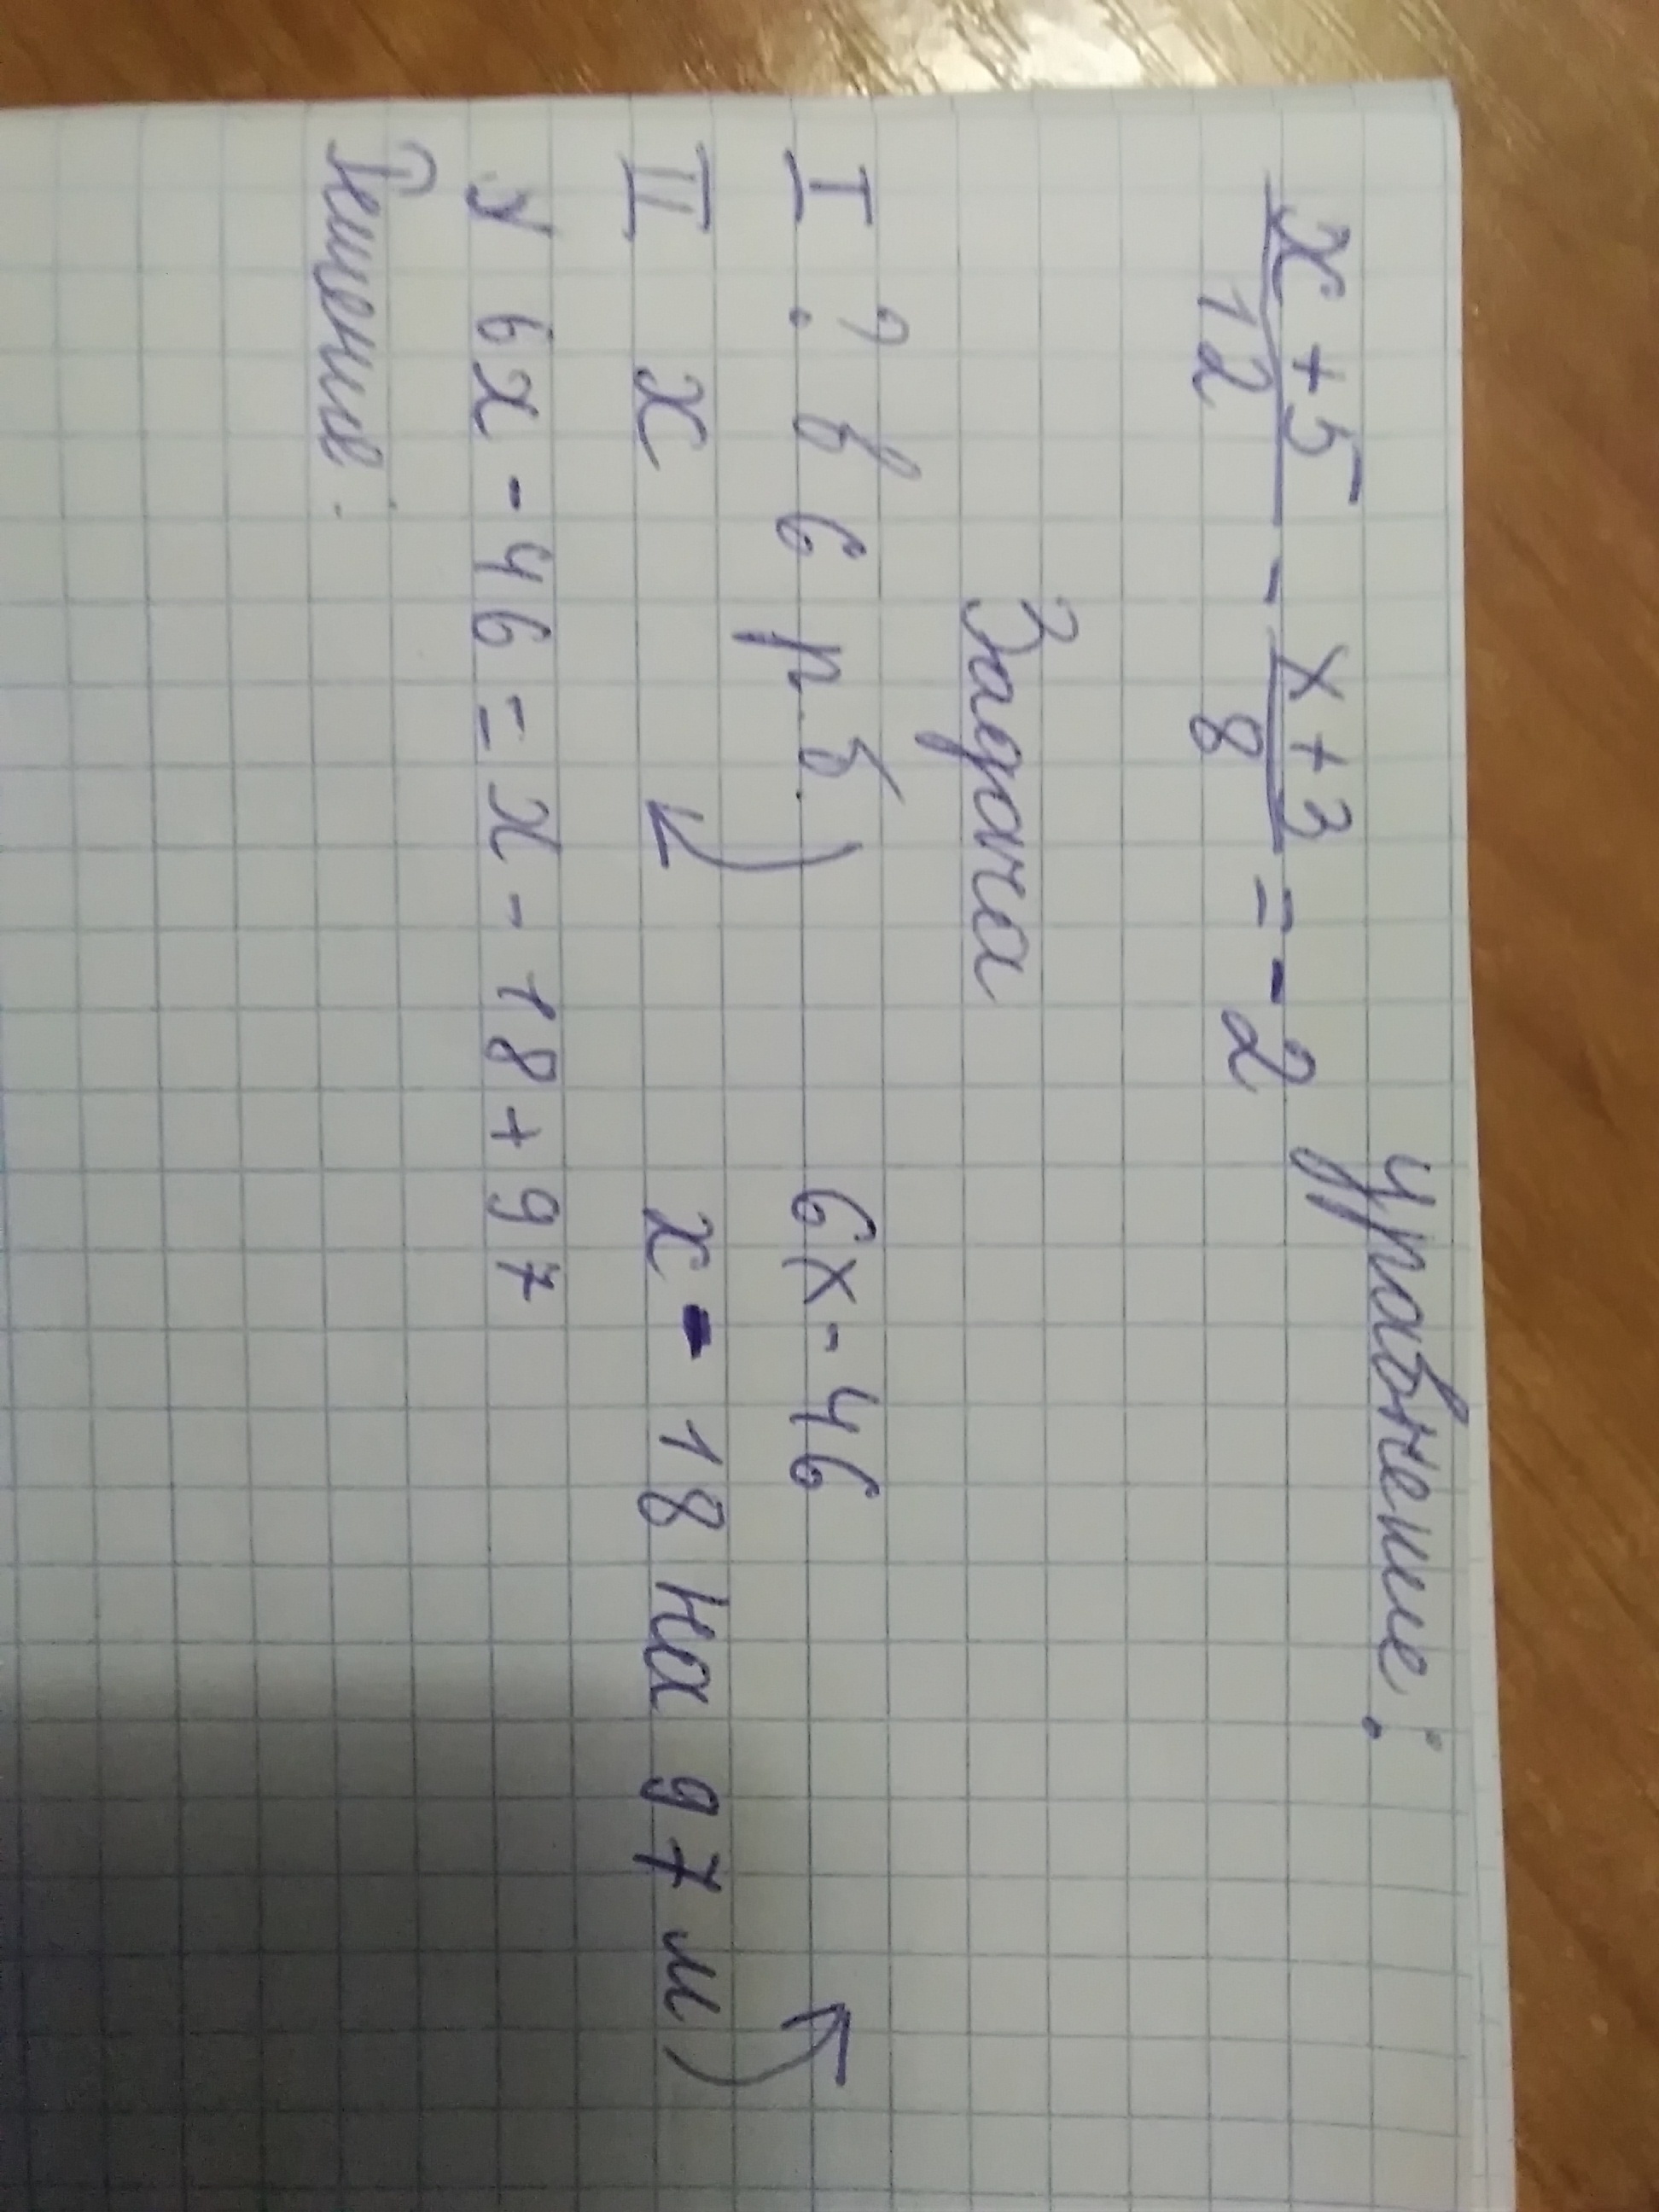 Уравнение:
x + 5 / 12 - x + 3 / 8 = - 2
Задача
I ? в 6 р. б. 6x - 46
II x x - 18 на 97 м
1) 6x - 46 = x - 18 + 97
Решение: